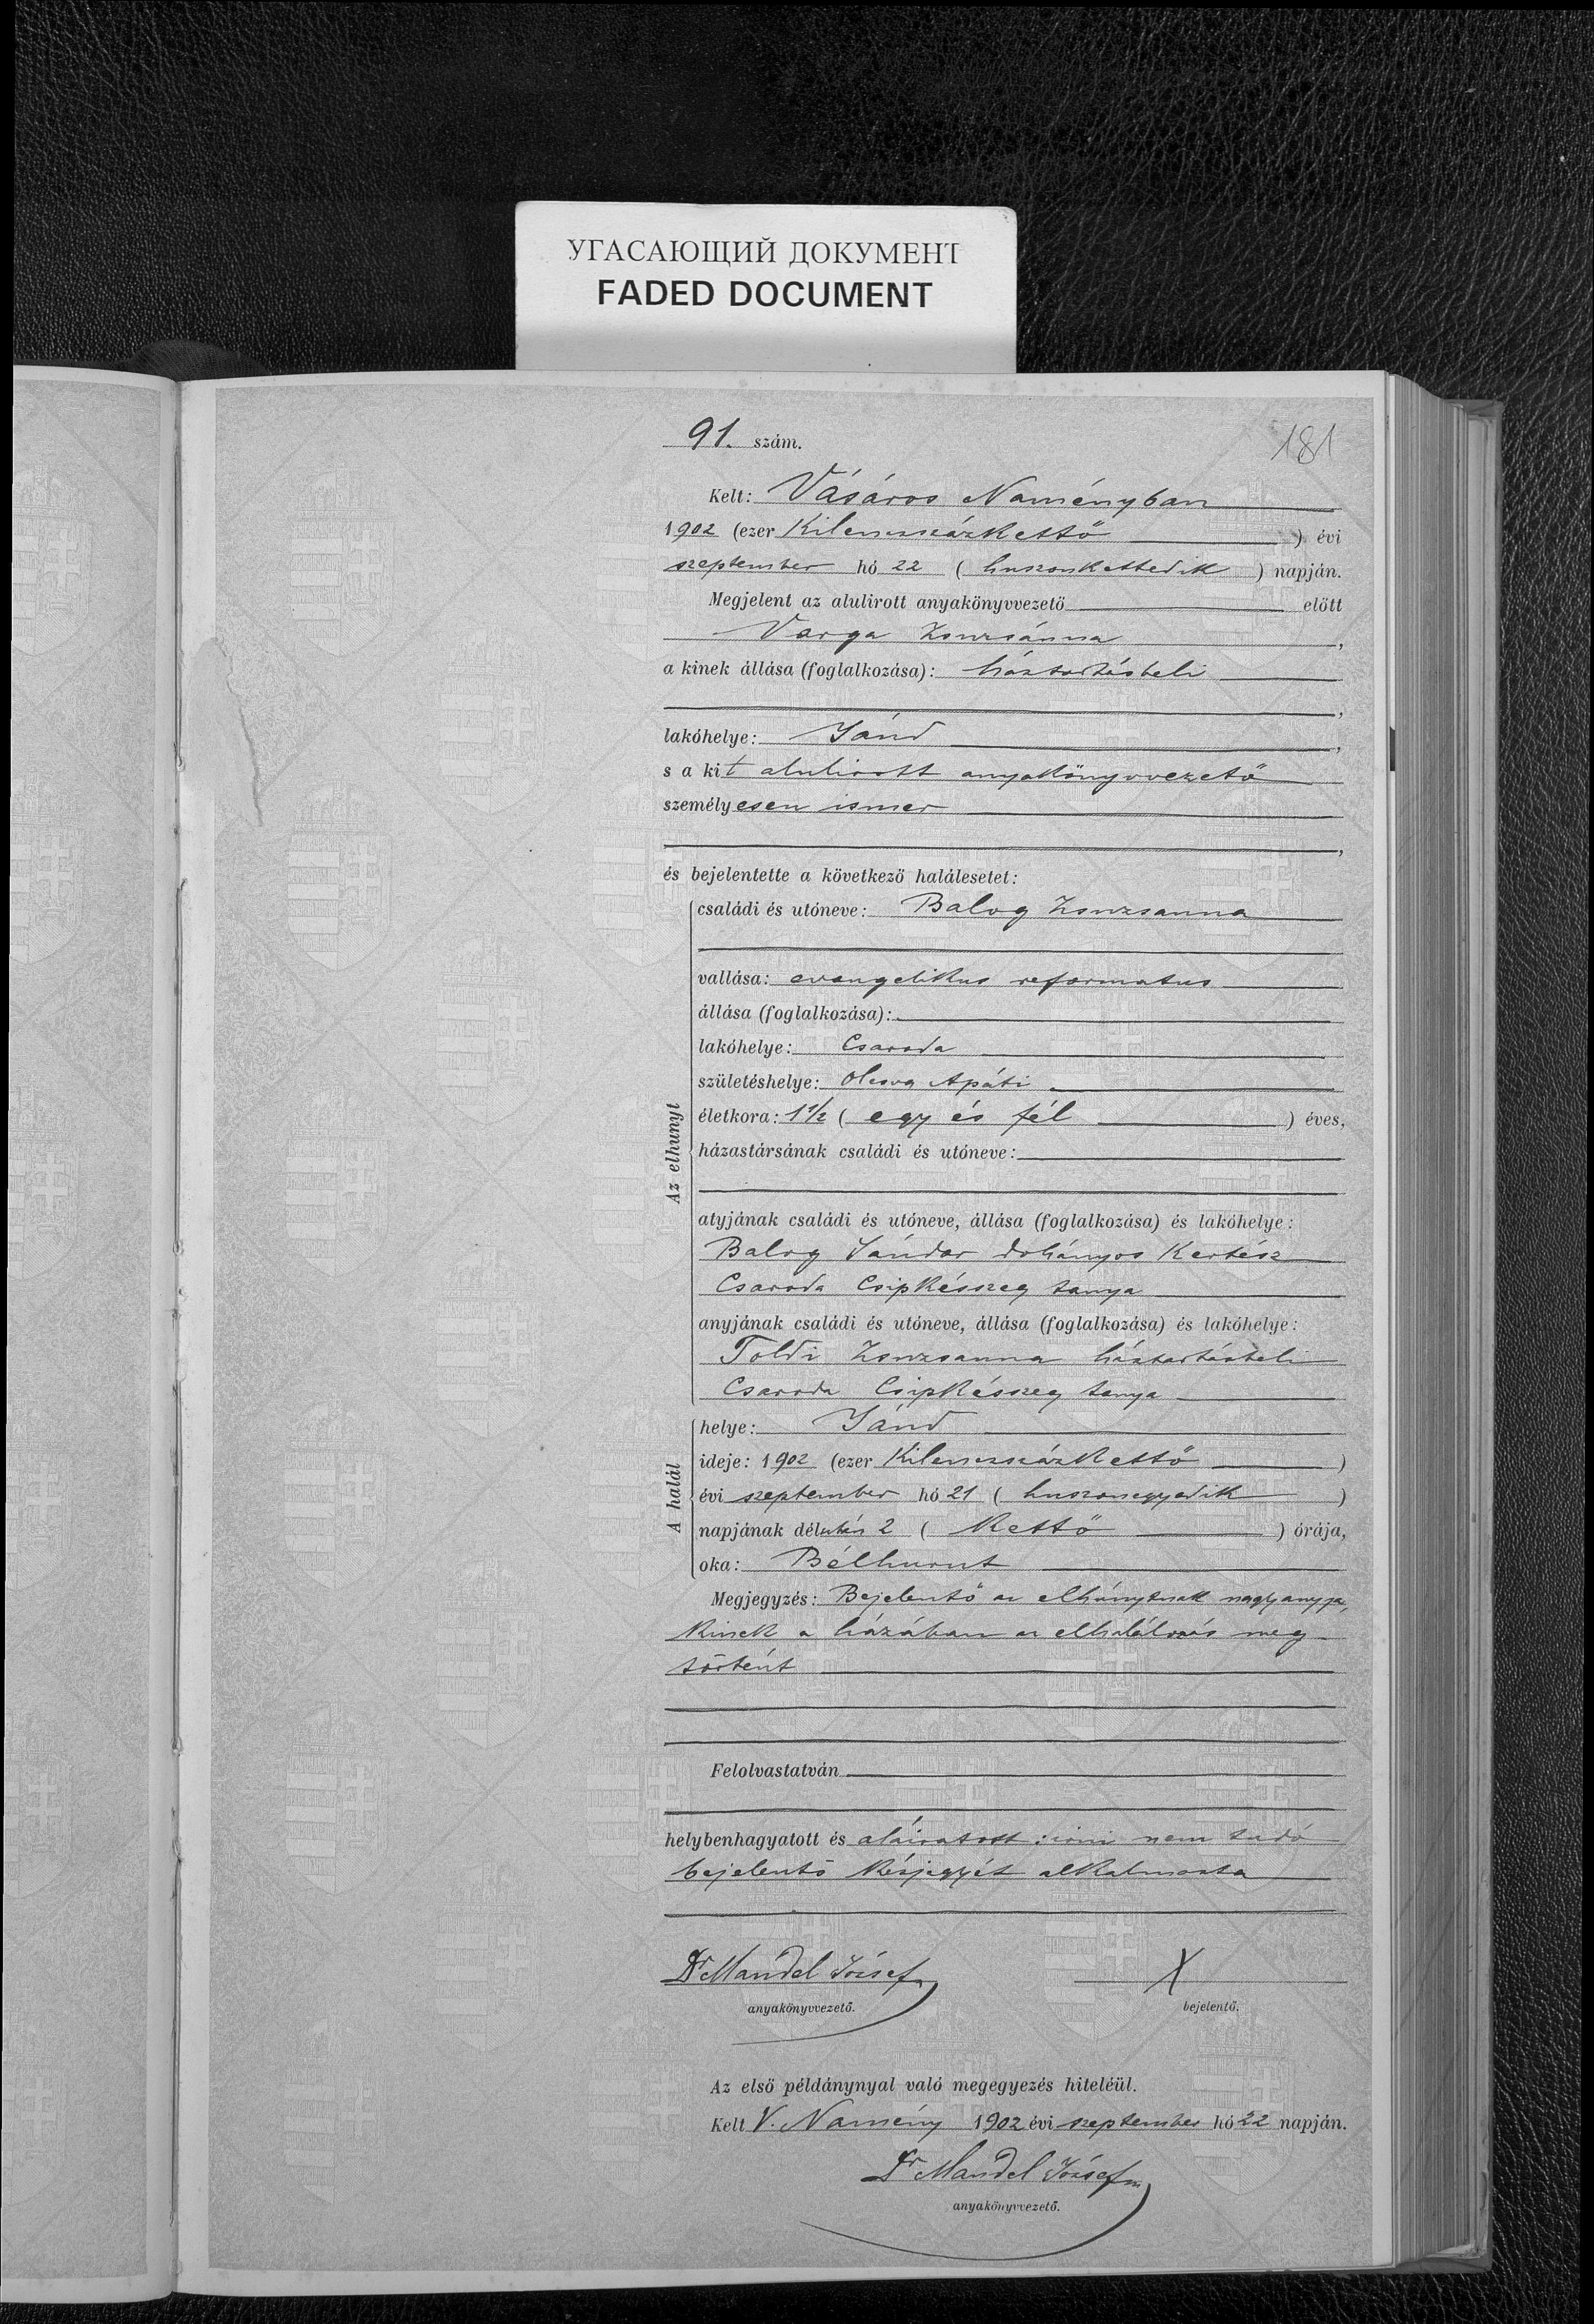 УГАСАЮЩИЙ ДОКУМЕНТ
FADED DOCUMENT
91. szám.
181
Kelt: Vásáros Naményban
1902 (ezer Kilenczszázkettő ) évi
szeptember hó 22 ( huszonkettedik ) napján.
Megjelent az alulirott anyakönyvvezető előtt
Varga Zsuzsánna ,
a kinek állása (foglalkozása): háztartásbeli
,
lakóhelye: Jánd ,
s a kit alulirott anyakönyvvezető
személyesen ismer
,
és bejelentette a következő halálesetet:
Az elhunyt
családi és utóneve: Balog Zsuzsanna
vallása: evangelikus reformatus
állása (foglalkozása):
lakóhelye: Csaroda
születéshelye: Olcsva Apáti
életkora: 1 1/2 ( egy és fél ) éves,
házastársának családi és utóneve:
atyjának családi és utóneve, állása (foglalkozása) és lakóhelye:
Balog Sándor dohányos Kertész
Csaroda Csipkésszeg tanya
anyjának családi és utóneve, állása (foglalkozása) és lakóhelye:
Toldi Zsuzsanna háztartásbeli
Csaroda Csipkésszeg tanya
A halál
helye: Jánd
ideje: 1902 (ezer Kilenczszázkettő )
évi szeptember hó 21 ( huszonegyedik )
napjának délután 2 ( Kettő ) órája,
oka: Bélhurut
Megjegyzés: Bejelentő az elhúnytnak nagyanyja,
kinek a házában az elhalálozás meg
történt
Felolvastatván
helybenhagyatott és aláiratott; irni nem tudó
bejelentő kézjegyét alkalmazta
Dr Mandel József
anyakönyvvezető.
X
bejelentő.
Az első példánynyal való megegyezés hiteléül.
Kelt V. Namény 1902 évi szeptember hó 22 napján.
Dr Mandel József
anyakönyvvezető.